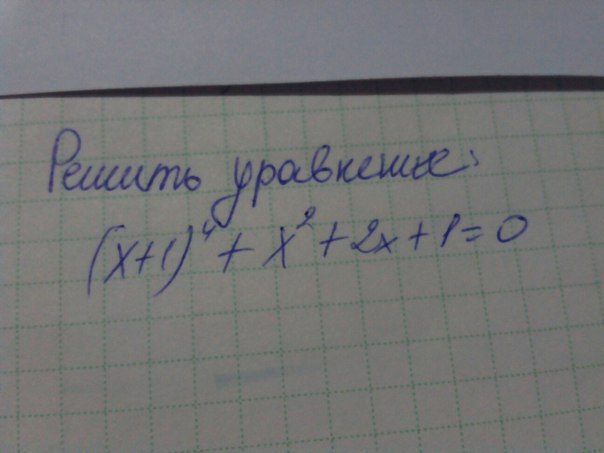 Решить уравнение:
(x+1)⁴ + x² + 2x + 1 = 0